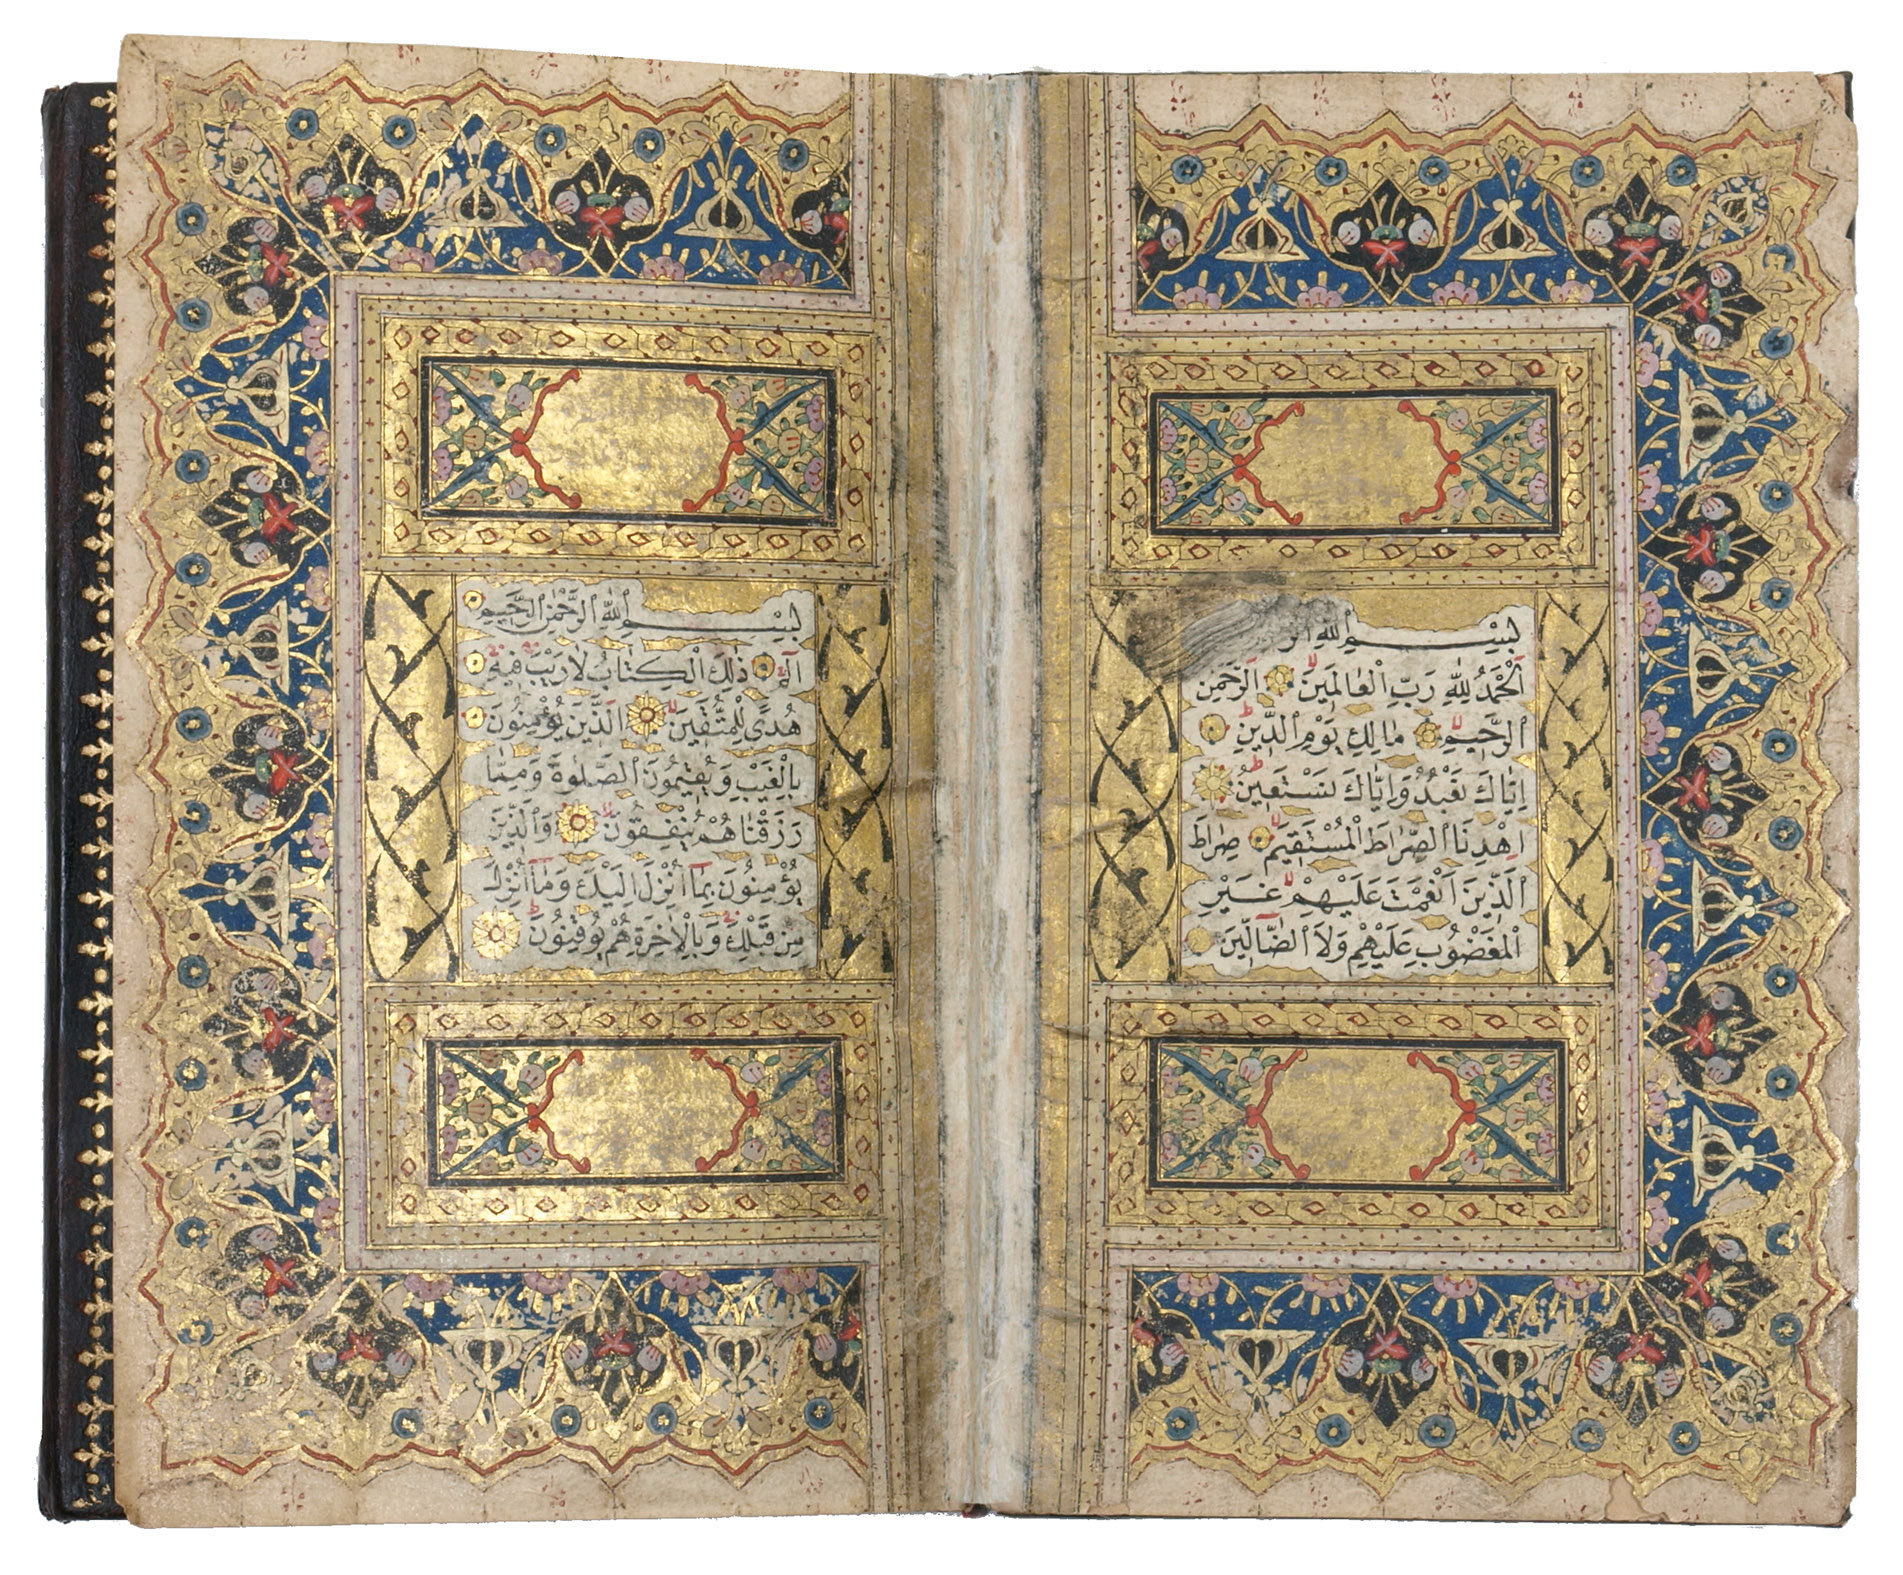 بِسْمِ اللّٰهِ
اَلْحَمْدُ لِلّٰهِ رَبِّ الْعَالَمِينَ الرَّحْمٰنِ
الرَّحِيمِ مَالِكِ يَوْمِ الدِّينِ
اِيَّاكَ نَعْبُدُ وَاِيَّاكَ نَسْتَعِينُ
اِهْدِنَا الصِّرَاطَ الْمُسْتَقِيمَ صِرَاطَ
الَّذِينَ اَنْعَمْتَ عَلَيْهِمْ غَيْرِ
الْمَغْضُوبِ عَلَيْهِمْ وَلَا الضَّالِّينَ
بِسْمِ اللّٰهِ الرَّحْمٰنِ الرَّحِيمِ
الٓمٓ ذٰلِكَ الْكِتَابُ لَا رَيْبَ فِيهِ
هُدًى لِلْمُتَّقِينَ الَّذِينَ يُؤْمِنُونَ
بِالْغَيْبِ وَيُقِيمُونَ الصَّلٰوةَ وَمِمَّا
رَزَقْنَاهُمْ يُنْفِقُونَ وَالَّذِينَ
يُؤْمِنُونَ بِمَٓا اُنْزِلَ اِلَيْكَ وَمَٓا اُنْزِلَ
مِنْ قَبْلِكَ وَبِالْاٰخِرَةِ هُمْ يُوقِنُونَ